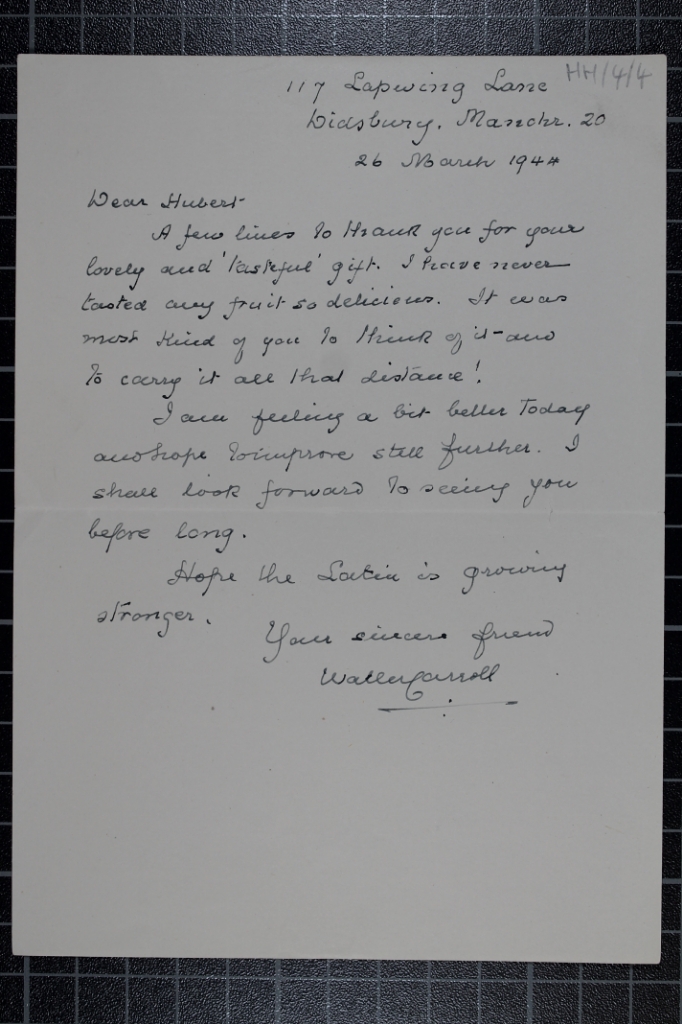 HH/4/4
117 Lapwing Lane
Didsbury, Manchr. 20
26 March 1944
Dear Hubert
A few lines to thank you for your
lovely and 'tasteful' gift. I have never
tasted any fruit so delicious. It was
most kind of you to think of it - and
to carry it all that distance!
I am feeling a bit better today
and hope to improve still further. I
shall look forward to seeing you
before long.
Hope the Latin is growing
stronger.
Your sincere friend
Walter Carroll